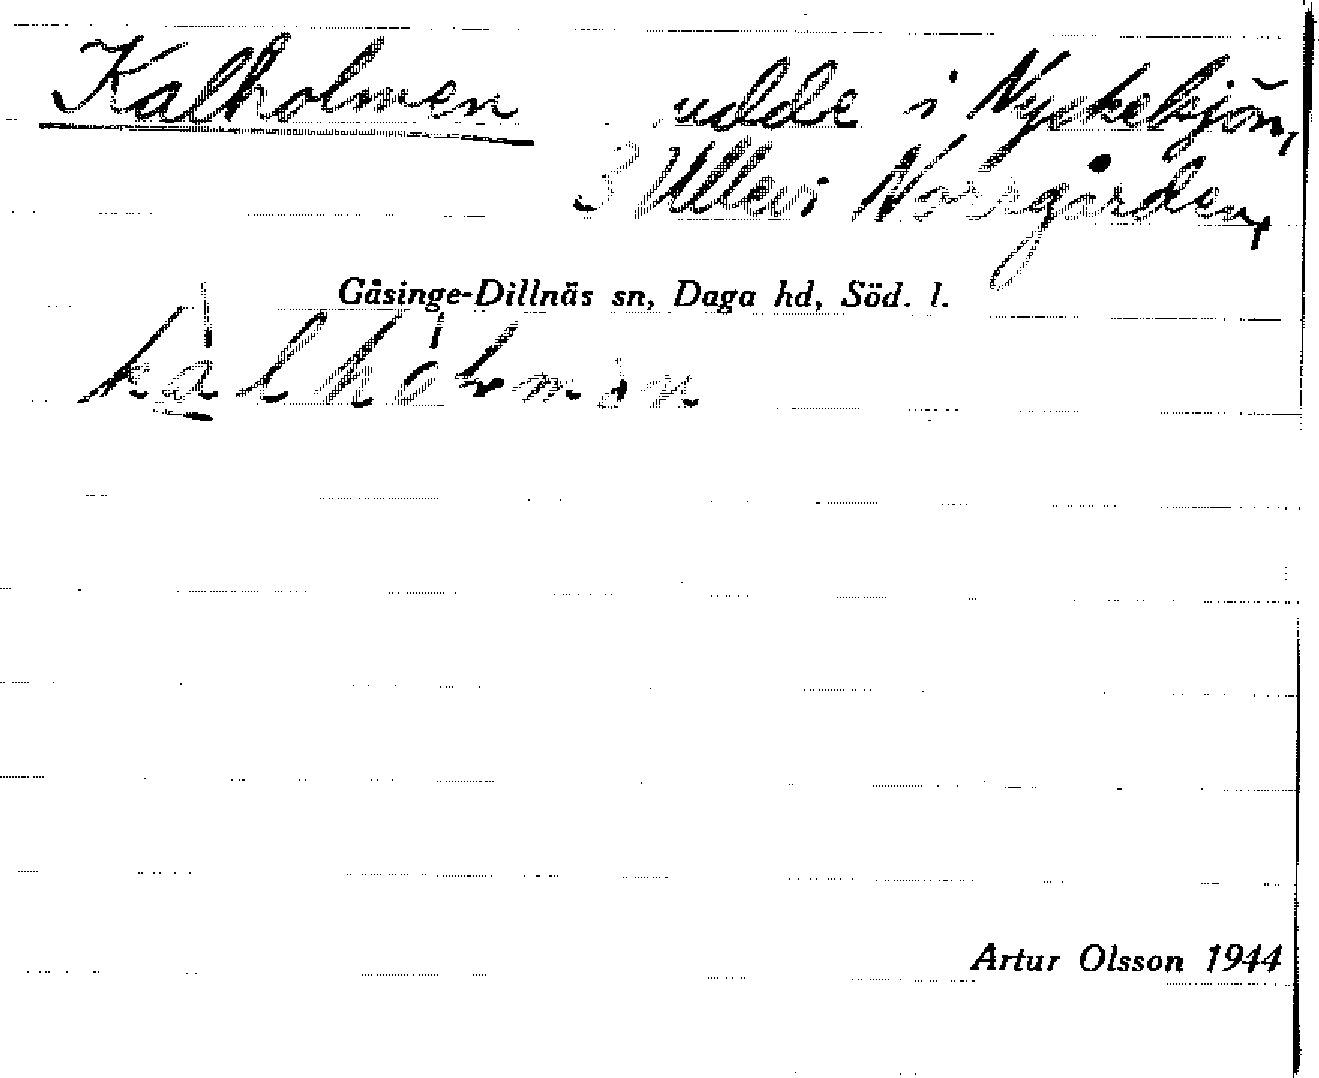 Kalholmen udde i Nyckelsjön,
S Ullevi Norrgården,
Gåsinge-Dillnäs sn, Daga hd, Söd. l.
Artur Olsson 1944